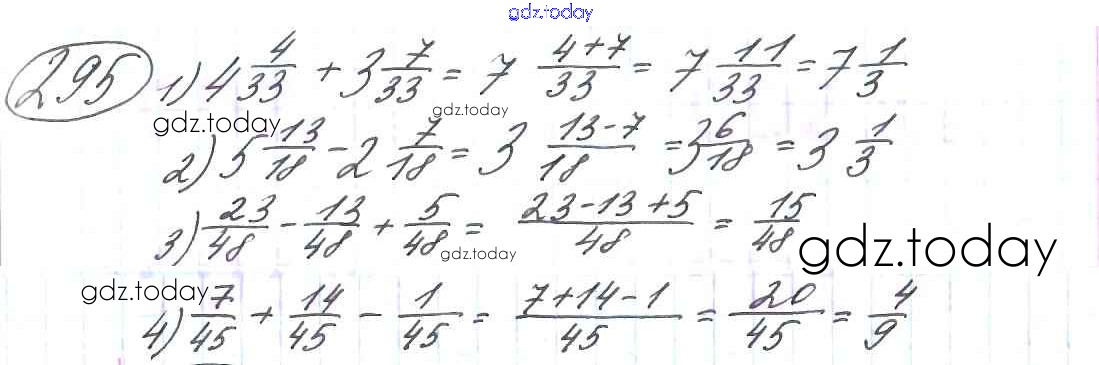 gdz.today
295 1) 4 4/33 + 3 7/33 = 7 (4+7)/33 = 7 11/33 = 7 1/3
gdz.today gdz.today
2) 5 13/18 - 2 7/18 = 3 (13-7)/18 = 3 6/18 = 3 1/3
3) 23/48 - 13/48 + 5/48 = (23-13+5)/48 = 15/48
gdz.today gdz.today
gdz.today
4) 7/45 + 14/45 - 1/45 = (7+14-1)/45 = 20/45 = 4/9